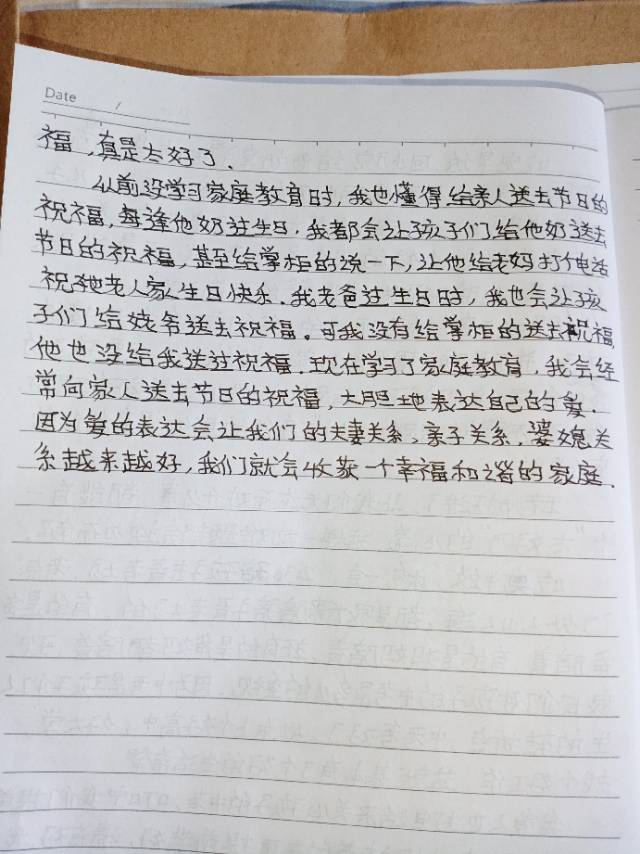 Date /
福，真是太好了、
从前没学习家庭教育时，我也懂得给亲人送去节日的
祝福，每逢他奶过生日，我都会让孩子们给他奶送去
节日的祝福，甚至给掌柜的说一下，让他给老妈打个电话
祝她老人家生日快乐、我老爸过生日时，我也会让孩
子们给姥爷送去祝福。可我没有给掌柜的送去祝福
他也没给我送过祝福．现在学习了家庭教育，我会经
常向家人送去节日的祝福，大胆地表达自己的爱．
因为爱的表达会让我们的夫妻关系，亲子关系，婆媳关
系越来越好，我们就会收获一个幸福和谐的家庭．